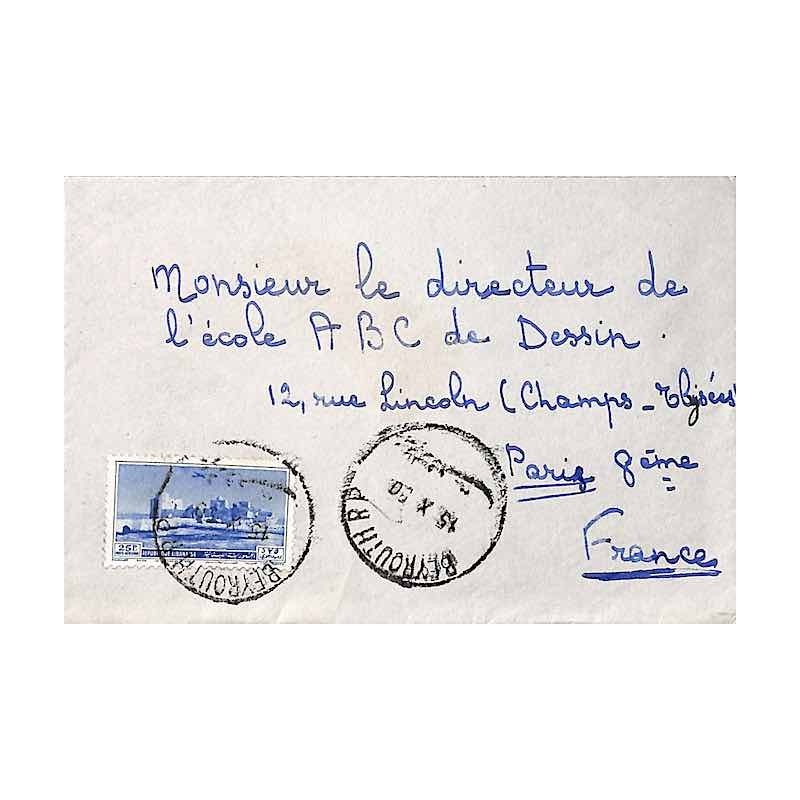 Monsieur le directeur de
l'école ABC de Dessin.
12, rue Lincoln (Champs-Elysées)
Paris 8ème
France
25P
REPUBLIQUE LIBANAISE
BEYROUTH R.P.
BEYROUTH R.P.
15 X 50